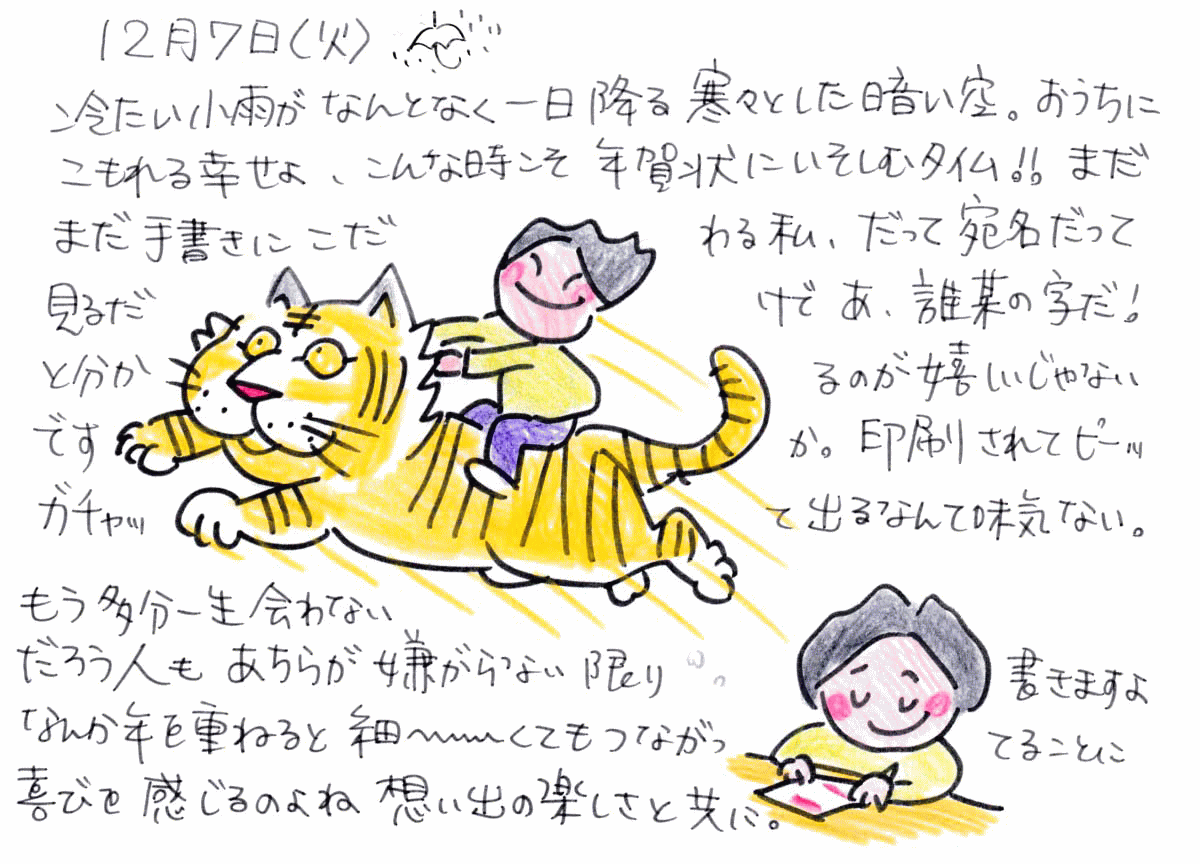 12月7日(火)
冷たい小雨がなんとなく一日降る寒々とした暗い空。おうちに
こもれる幸せよ、こんな時こそ年賀状にいそしむタイム!!まだ
まだ手書きにこだわる私、だって宛名だって
見るだけで あ、誰某の字だ!
と分かるのが嬉しいじゃない
ですか。印刷されてピーッ
ガチャッて出るなんて味気ない。
もう多分一生会わない
だろう人も あちらが嫌がらない限り 書きますよ
なんか年を重ねると 細〜〜くてもつながってることに
喜びを感じるのよね 想い出の楽しさと共に。